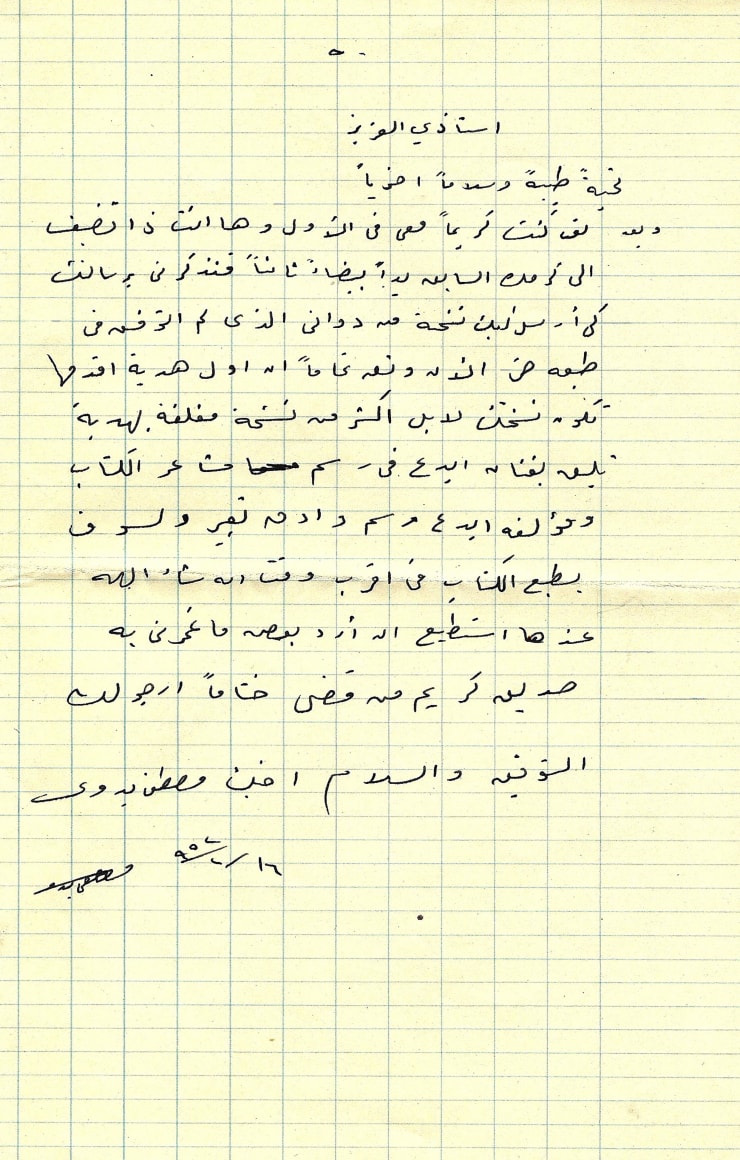 استاذي العزيز
تحيةً طيبةً وسلاماً اخوياً
وبعد لقد كنت كريماً معي في الاول وها انت ذا تضيف
الى كرمك السابق يداً بيضاءً ثانيةً فتذكرني برسالتك
كي أرسل اليك نسخة من ديواني الذي لم اتوفق في
طبعه حتى الان وثق تماماً ان اول هدية اقدمها
تكون نسختك لا بل اكثر من نسخة مغلفة بهدية
تليق بفنان ابدع في رسم مشاعر الكتاب
ومؤلفه ابدع رسم وادق تعبير ولسوف
يطبع الكتاب في اقرب وقت ان شاء الله
عندها استطيع ان أرد بعض ما غمرني به
صديق كريم من فضل ختاماً ارجو لك
التوفيق والسلام اخيك مصطفى بدوي
١٦/